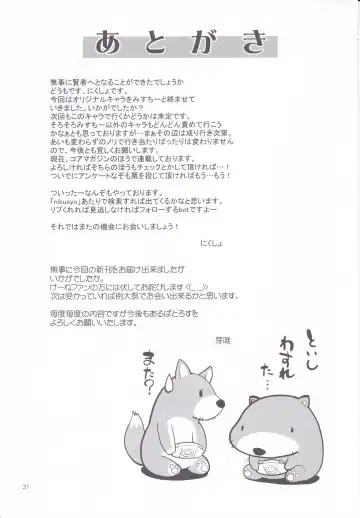 あとがき
無事に賢者へとなることができたでしょうか
どうもです、にくしょです。
今回はオリジナルキャラをみすちーと絡ませて
いきました。いかがでしたか？
次回もこのキャラで行くかどうかは未定です。
そろそろみすちー以外のキャラもどんどん責めて行こう
かなぁとも思っておりますが…まぁその辺は成り行き次第。
あいも変わらずのノリで行き当たりばったりは変わりません
ので、今後とも宜しくお願いします。
現在、コアマガジンのほうで連載しております。
よろしければそちらのほうもチェックとかして頂ければ…！
ついでにアンケートなぞも票を投じて頂ければもう…もう！
ついったーなんぞもやっております。
「nikusyo」あたりで検索すれば出てくるかなと思います。
リプくれれば見逃しなければフォローするbotですよー
それではまたの機会にお会いしましょう！
にくしょ
無事に今回の新刊をお届け出来ましたが
いかがでしたか。
けーねファンの方には伏してお詫びします（_ _）
次は受かっていれば例大祭でお会い出来るかと思います。
毎度毎度の内容ですが今後もあるぱとろすを
よろしくお願いいたします。
芽唯
といし
わすれ
た…
また？
31